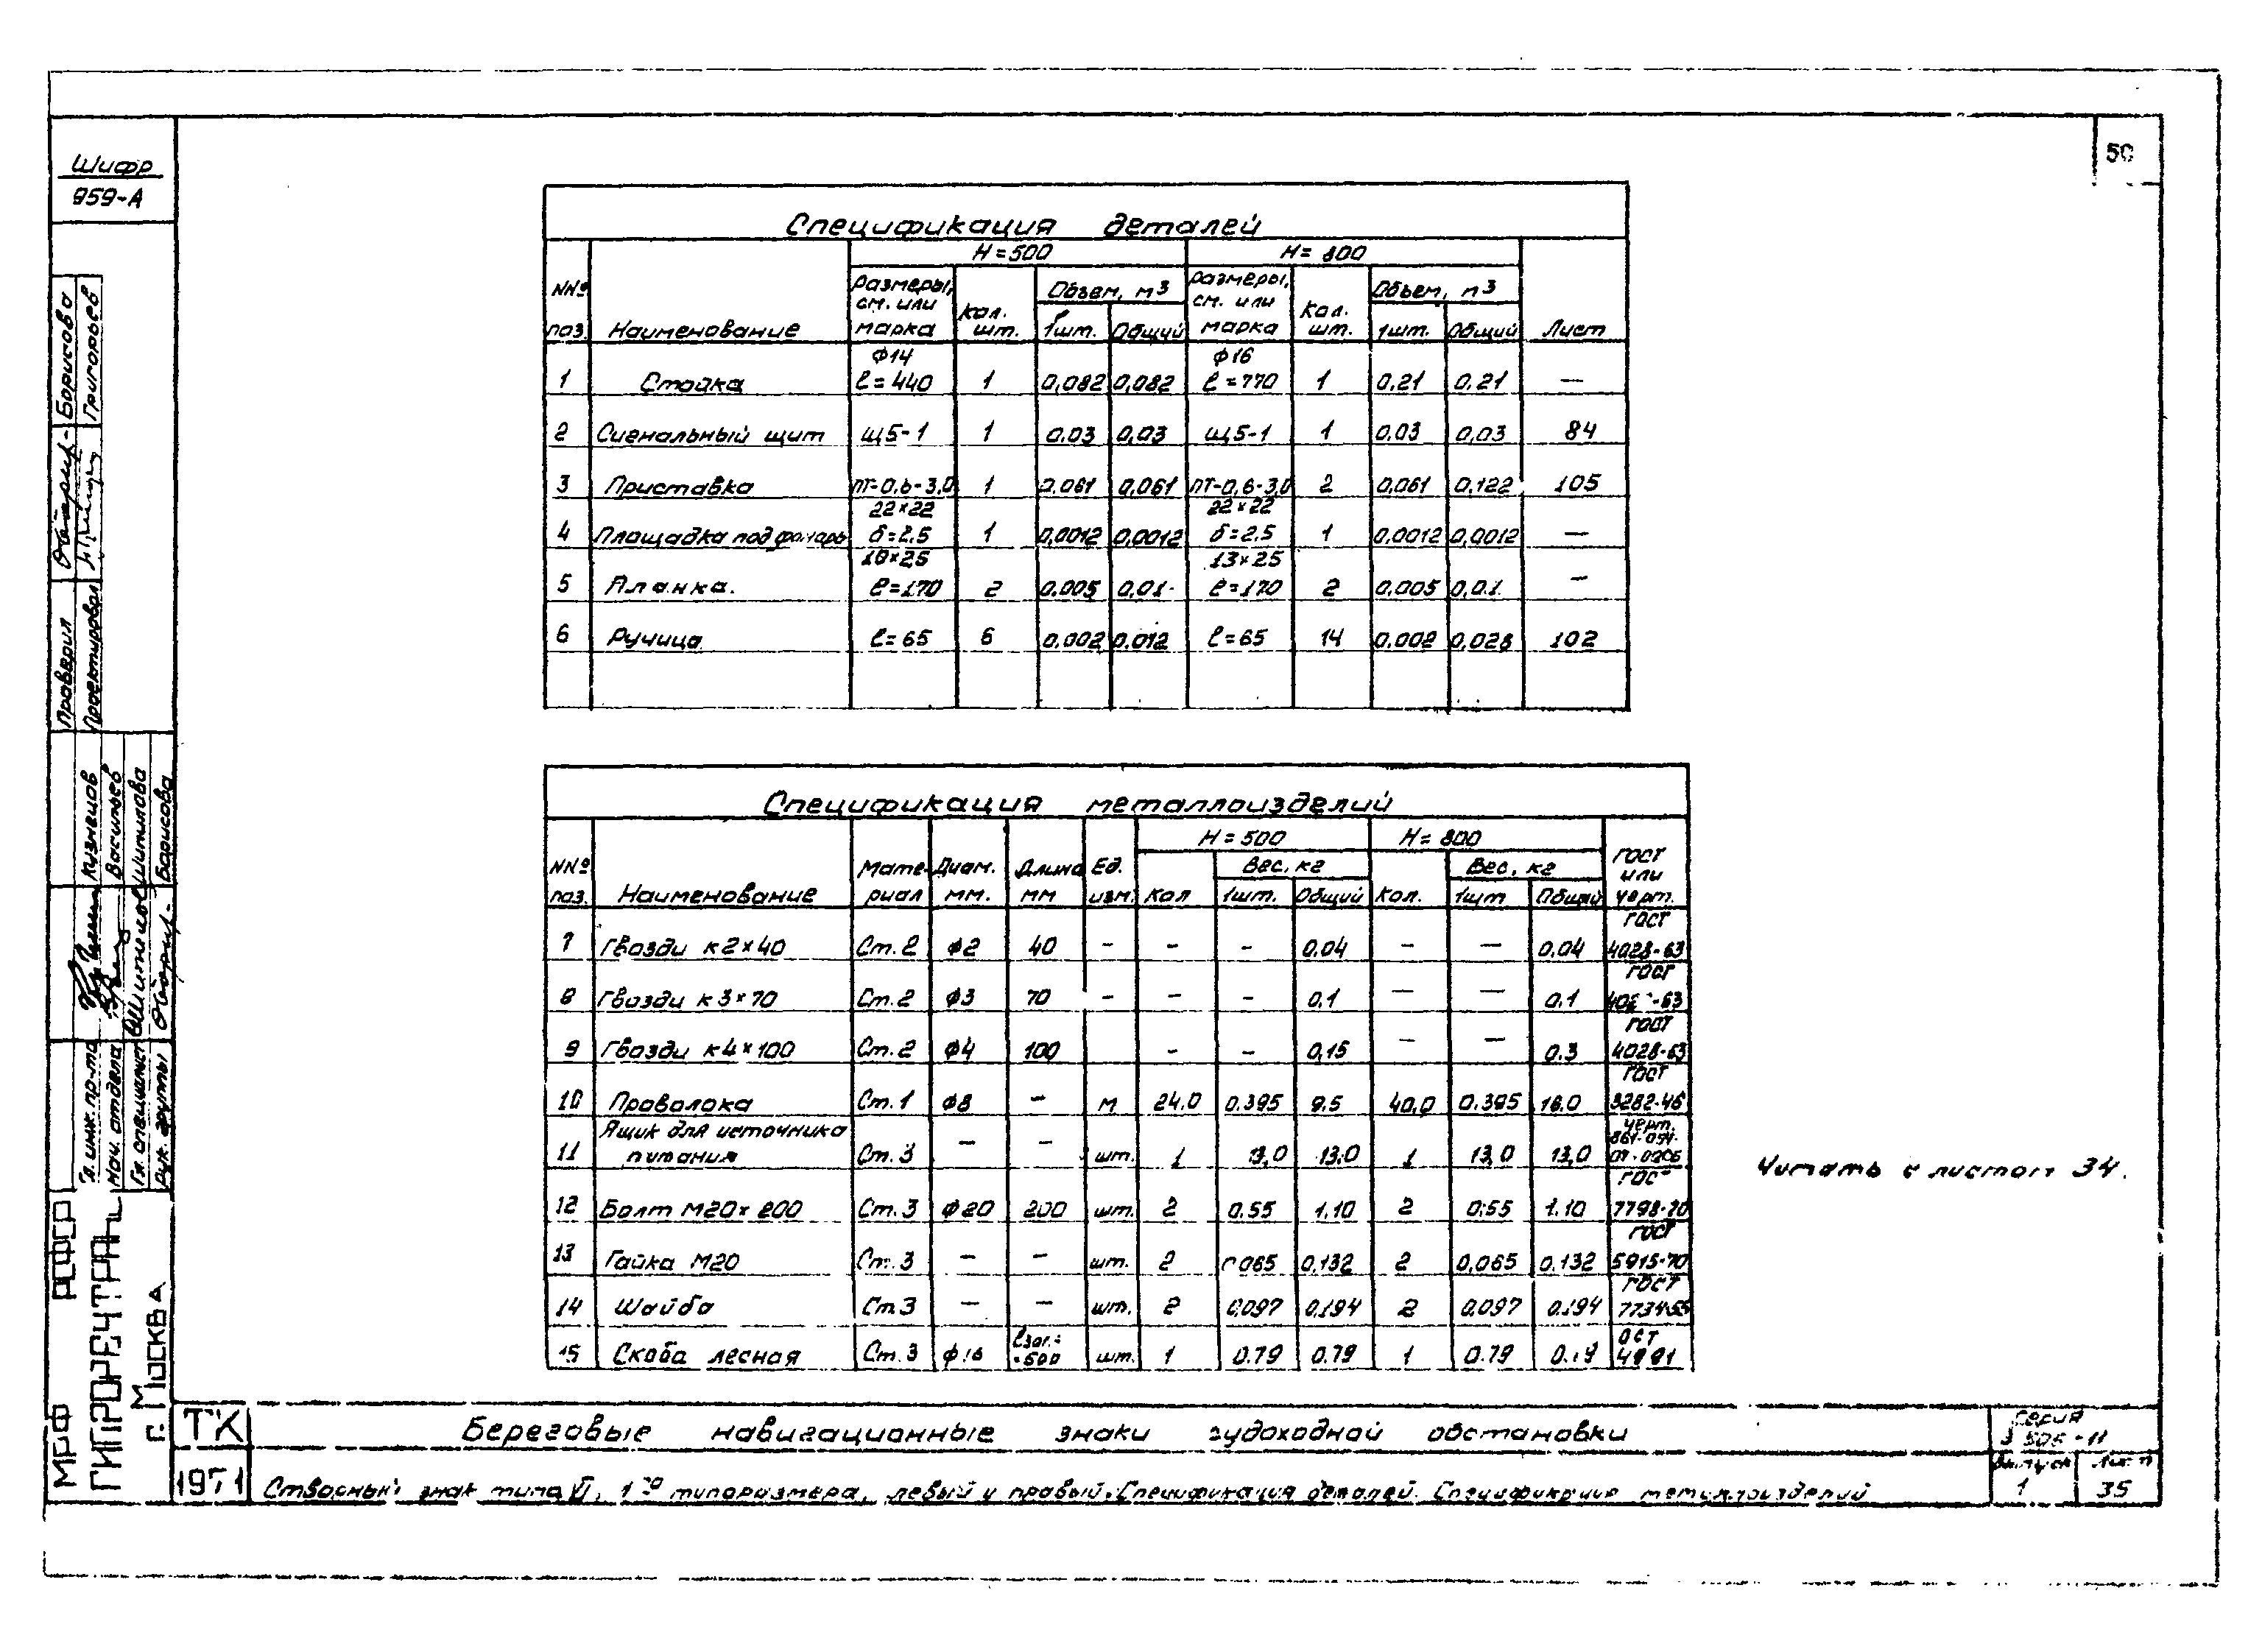 50
Шифр
959-А
Спецификация деталей
NNº поз. Наименование H=500 H=800 Лист
Размеры, см. или марка Кол. шт. Объем, м3 Размеры, см. или марка Кол. шт. Объем, м3
1шт. Общий 1шт. Общий
1 Стойка ф14 ℓ=440 1 0,082 0,082 ф16 ℓ=770 1 0,21 0,21 —
2 Сигнальный щит Щ5-1 1 0,03 0,03 Щ5-1 1 0,03 0,03 84
3 Приставка ПТ-0,6-3,0 1 0,061 0,061 ПТ-0,6-3,0 2 0,061 0,122 105
4 Площадка под фонарь 22×22 δ=2,5 1 0,0012 0,0012 22×22 δ=2,5 1 0,0012 0,0012 —
5 Планка. ℓ=170 2 0,005 0,01 13×25 ℓ=170 2 0,005 0,01 —
6 Ручица ℓ=65 6 0,002 0,012 ℓ=65 14 0,002 0,028 102
Спецификация металлоизделий
NNº поз. Наименование Материал Диам. мм. Длина мм Ед. изм. H=500 H=800 ГОСТ или черт.
Кол Вес, кг Кол. Вес, кг
1шт. Общий 1шт Общий
7 Гвозди к2×40 Ст.2 ф2 40 — — — 0,04 — — 0,04 ГОСТ 4028-63
8 Гвозди к3×70 Ст.2 ф3 70 — — — 0,1 — — 0,1 ГОСТ
9 Гвозди к4×100 Ст.2 ф4 100 — — 0,15 — — 0,3 ГОСТ 4028-63
10 Проволока Ст.1 ф8 — м 24,0 0,395 9,5 40,0 0,395 16,0 ГОСТ 3282-46
11 Ящик для источника питания Ст.3 — — шт. 1 13,0 13,0 1 13,0 13,0 черт.
12 Болт М20×200 Ст.3 ф20 200 шт. 2 0,55 1,10 2 0,55 1,10 ГОСТ 7798-70
13 Гайка М20 Ст.3 — — шт. 2 0,065 0,132 2 0,065 0,132 ГОСТ 5915-70
14 Шайба Ст.3 — — шт. 2 0,097 0,194 2 0,097 0,194 ГОСТ
15 Скоба лесная Ст.3 ф16 ℓзаг.=500 шт. 1 0,79 0,79 1 0,79 ОСТ 4991
Читать с листом 34.
Проверил Борисова
Проектировал Григорьев
Гл. инж. пр-та Кузнецов
Нач. отдела Васильев
Гл. специалист Шипилова
Рук. группы Борисова
МРФ РСФСР
ГИПРОРЕЧТРАНС
г. Москва
ТК
1971
Береговые навигационные знаки судоходной обстановки
Створный знак типа VI, 1го типоразмера, левый и правый. Спецификация деталей. Спецификация металлоизделий
Серия
3 505-11
Выпуск Лист
1 35